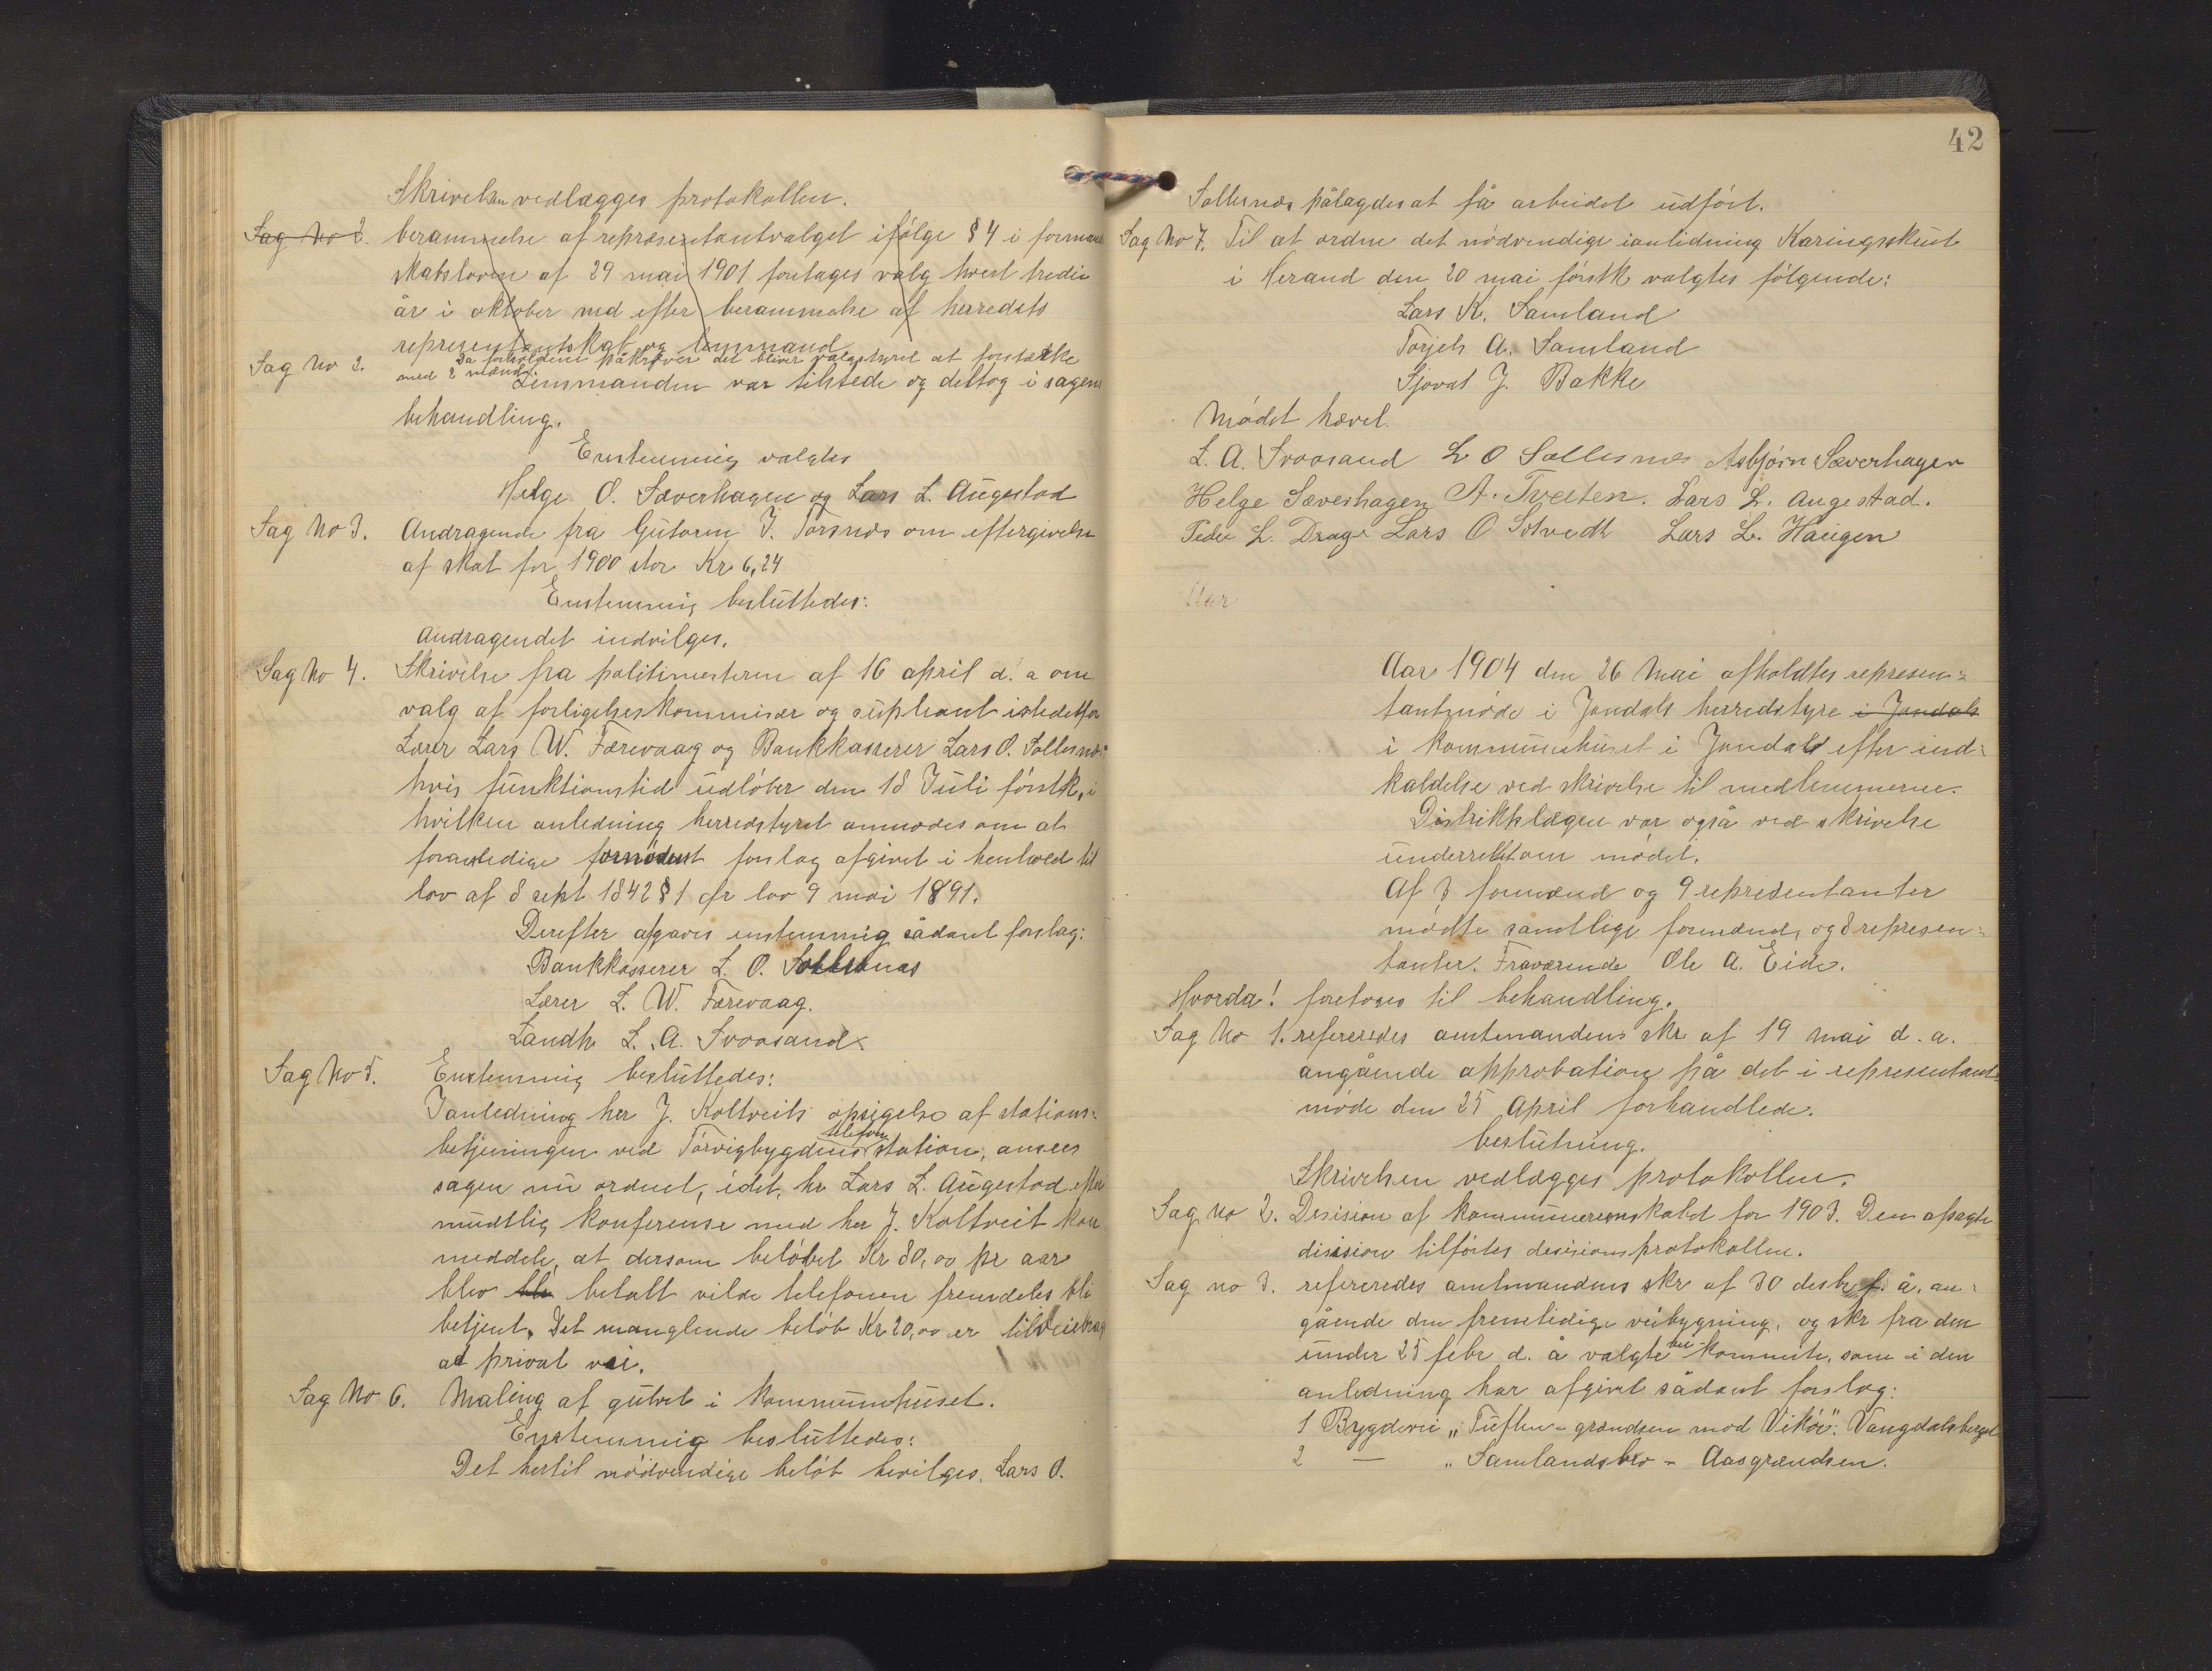 Skrivelsen vedlægges protokollen.
Sag No 2. berammelse af repræsentantvalget ifølge § 4 i formand
skabsloven af 29 mai 1901 foretages valg hvert tredie
år i oktober med efter berammelse af herredets
representantskab og lensmand
Sag No 2. Da forholdene påkræver det bliver valgstyret at forstærke
med 2 mænd. Linsmanden var tilstede og deltog i sagens
behandling.
Enstemmig valgtes
Helge O. Sæverhagen og Lars L. Augestad
Sag No 3. Andragende fra Gutorm I. Torsnes om eftergivelse
af skat for 1900 stor Kr 6,24
Enstemmig besluttedes:
Andragendet indvilges.
Sag No 4. Skrivelse fra politimesteren af 16 april d. a om
valg af forligelseskommisær og supleant istedetfor
Lærer Lars W. Færevaag og Bankkasserer Lars O. Sollesnæs
hvis funktionstid udløber den 18 Juli førstk, i
hvilken anledning herredstyret anmodes om at
foranledige fornødent forslag afgivet i henhold til
lov af 8 sept 1842 § 1 cfr lov 9 mai 1891.
Derefter afgaves enstemmig sådant forslag:
Bankkasserer L. O. Sollesnæs
Lærer L. W. Færevaag.
Landh. L. A. Svaasand
Sag No 5. Enstemmig besluttedes:
I anledning her J. Koltveits opsigelse af stations-
betjeningen ved Torvigbygdens telefon station, ansees
sagen nu ordnet, idet hr Lars L. Augestad efter
mundtlig konferense med her J. Koltveit kan
meddele, at dersom beløbet Kr 80,00 pr aar
blev bli betalt vilde telefonen fremdeles bli
betjent. Det manglende beløb Kr 20,00 er tilveiebragt
ad privat vei.
Sag No 6. Maling af gulvet i kommunehuset.
Enstemmig besluttedes:
Det hertil nødvendige beløb bevilges. Lars O.
42
Sollesnæs pålagdes at få arbeidet udført.
Sag No 7. Til at ordne det nødvendige ianledning Kåringsskuet
i Herand den 20 mai førstk valgtes følgende:
Lars K. Samland
Torjels A. Samland
Sjovat J. Bakke
Mødet hævet.
L. A. Svaasand L O Sollesnes Asbjørn Sæverhagen
Helge Sæverhagen A. Tveiten. Lars L. Augestad.
Peder L. Drage Lars O Solvedt Lars L. Haugen
Aar
Aar 1904 den 26 Mai afholdtes represen-
tantmøde i Jondals herredstyre i Jondals
i kommunehuset i Jondal efter ind-
kaldelse ved skrivelse til medlemmerne.
Distriktslægen var også ved skrivelse
underrettet om mødet.
Af 3 formænd og 9 representanter
mødte samtlige formænd og 8 represen-
tanter. Fraværende Ole A. Eide.
Hvorda! foretoges til behandling.
Sag No 1. refereredes amtmandens skr af 19 mai d. a.
angående approbation på det i representant-
møde den 25 April forhandlede.
beslutning.
Skrivelsen vedlægges protokollen.
Sag No 2. Desision af kommuneregnskabet for 1903. Den afsagte
disision tilførtes desisionsprotokollen.
Sag no 3. refereredes amtmandens skr af 30 desbr f. å. an-
gående den fremtidige veibygning, og skr fra den
under 25 febr d. å valgte vei-komite, som i den
anledning har afgivet sådant forslag:
1 Bygdevei „Tuften - grændsen mod Vikør": Vangdalsberget
2 — „ Samlandsbro - Aasgrændsen.